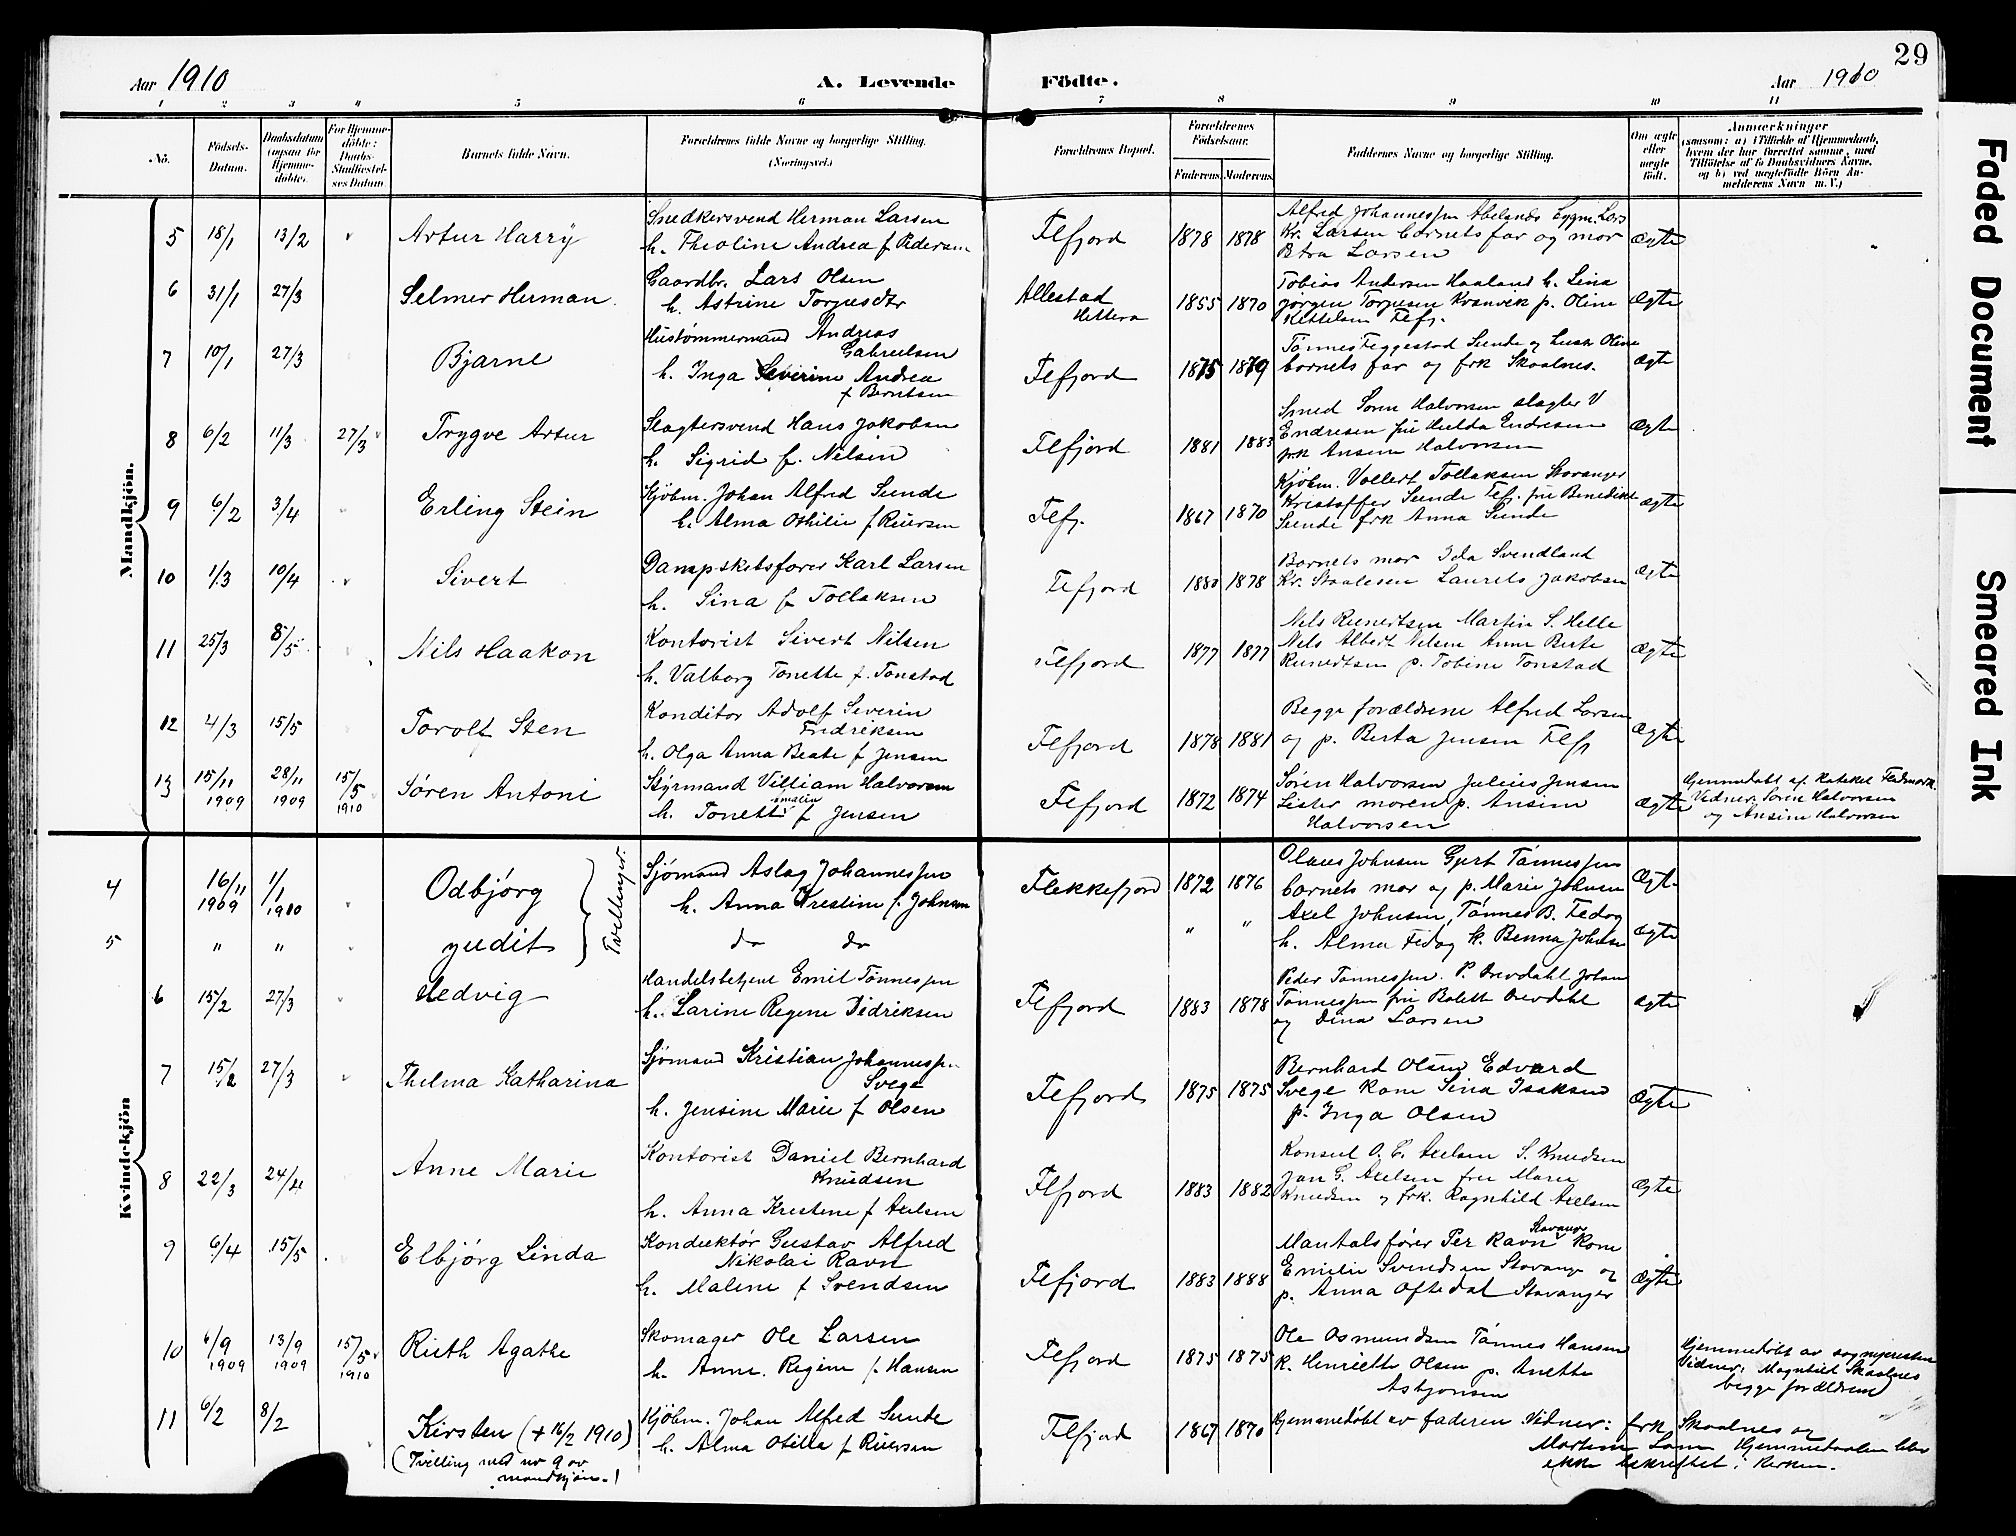 29
Aar 1910
A. Levende
Födte.
Aar 1910
1 2 3 4 5 6 7 8 9 10 11
No.
Födsels-Datum.
Daabsdatum (ogsaa for Hjemme-döbte).
For Hjemme-döbte: Daabs-Stadfæstel-ses Datum
Barnets fulde Navn.
Forældrenes fulde Navne og borgerlige Stilling.
(Næringsvei.)
Forældrenes Bopæl.
Forældrenes Födselsaar.
Faderens. Moderens.
Faddernes Navne og borgerlige Stilling.
Om ægte eller uægte födt.
Anmærkninger
(saasom: a) i Tilfælde af Hjemmedaab,
hvem der har forrettet samme, med
Tilföielse af to Daabsvidners Navne,
og b) ved uægtefödte Börn An-
melderens Navn m. V.)
Mandkjön.
5 18/1 13/2 Artur Harry
Snedkersvend Herman Larsen
h. Theoline Andrea f. Pedersen
Flefjord 1878 1878
Alfred Johannessen Abelands bygm. Lars
Kr. Larsen barnets far og mor
Petra Larsen
ægte
6 31/1 27/3 Selmer Herman
Gaardbr. Lars Olsen
h. Astrine Torjusdtr
Allestad
Hittera
1855 1870
Tobias Andersen Haaland h. Lina
Jörgen Torjusen Kvanvik p. Oline
Kettelsen Flefj.
ægte
7 10/1 27/3 Bjarne
Hustømmermand Andreas
Gabrielsen
h. Inga Severine Andrea
f Berntsen
Flefjord 1875 1879
Tønnes Feggestad Sunde og Oline
barnets far og frk Skaalnes.
ægte
8 6/2 11/3 27/3 Trygve Artur
Slagtersvend Hans Jakobsen
h. Sigrid f. Nilsen
Flefjord 1881 1883
Smed Søren Halvorsen slagter V
Endresen fru Hulda Endresen
frk Ansine Halvorsen
ægte
9 6/2 3/4 Erling Stein
Kjöbm. Johan Alfred Sunde
h. Alma Othilie f Reiersen
Flefj. 1867 1870
Kjöbm. Vollert Tollaksen Stavanger
Kristoffer Sunde Flefj. fru Benedikte
Sunde frk Anna Sunde
ægte
10 1/3 10/4 Sivert
Dampskibsfører Karl Larsen
h. Sina f Tollaksen
Flefjord 1880 1878
Barnets mor Ida Svendland
Kr. Staalesen Laurits Jakobsen
ægte
11 25/3 8/5 Nils Haakon
Kontorist Sivert Nilsen
h. Valborg Tonette f. Tonstad
Flefjord 1877 1877
Nils Reinertsen Martin S. Helle
Nils Albert Nilsen Anne Berte
Reinertsen p. Tobine Tonstad
ægte
12 4/3 15/5 Torolf Sten
Konditor Adolf Severin
Fredriksen
h. Olga Anna Beate f Jensen
Flefjord 1878 1881
Begge forældrene Alfred Larsen
og p. Berta Jensen Flefj
ægte
13 15/11 1909 28/11 1909 15/5 1910 Søren Antoni
Styrmand Villiam Halvorsen
h. Tonette Amalie f Jensen
Flefjord 1872 1874
Søren Halvorsen Julius Jensen
Lister moren p. Ansine
Halvorsen
ægte
Hjemmedøbt af Kateket
Vidner: Søren Halvorsen
og Ansine Halvorsen
Kvindekjön
4 16/11 1909 1/1 1910 Odbjörg
Tvillinger.
Sjømand Aslag Johannessen
h. Anna Kristine f. Johnsen
Flekkefjord 1872 1876
Olaus Johnsen Gert Tønnessen
barnets mor og p. Marie Johnsen
Ægt.
5 " " Judit
do do
" "
Axel Johnsen, Tønnes B. Fedog
h. Alma Fedog k. Benna Johnsen
ægte
6 15/2 27/3 Hedvig
Handelsbetjent Emil Tønnessen
h. Larine Regine Didriksen
Flefjord 1883 1878
Peder Tønnessen. P. Drevdahl Johan
Tønnessen fru Bolette Drevdahl
og Dina Larsen
ægte
7 15/2 27/3 Thelma Katharina
Sjømand Kristian Johannessen
Svege
h. Jensine Marie f Olsen
Flefjord 1875 1875
Bernhard Olsen Edvard
Svege kone Sina Isaksen
p. Inga Olsen
ægte
8 22/3 24/4 Anne Marie
Kontorist Daniel Bernhard
Knudsen
h. Anna Kristene f Axelsen
Flefjord 1883 1882
Konsul O. C. Axelsen S. Knudsen
Jan G. Axelsen fru Marie
Knudsen og frk. Ragnhild Axelsen
ægte
9 6/4 15/5 Elbjörg Linda
Konduktör Gustav Alfred
Nikolai Ravn
h. Malene f Svendsen
Flefjord 1883 1888
Mantalsfører Per Ravn Stavanger kone
Emilie Svendsen Stavanger og
p. Anna Oftedal Stavanger
Ægte
10 6/9 1909 13/9 1909 15/5 1910 Ruth Agathe
Skomager Ole Larsen
h. Anne. Regine f. Hansen
Flefjord 1875 1875
Ole Osmundsen Tønnes Hansen
k. Henriette Olsen p. Anette
Asbjørnsen
Hjemmedöbt av sognepresten
Vidner: Magnhild Skaalnes
begge forældrene
11 6/2 8/2 Kirsten (+ 16/2 1910)
(Tvilling med nr 9 av
mandkjøn.)
Kjöbm. Johan Alfred Sunde
h. Alma Otilie f Reiersen
Flefjord 1867 1870
Hjemmedöbt av faderen Vidner: frk Skaalnes og
Martine Lam Hjemmedaaben blev
ikke bekræftet i kirken.
Faded Document
Smeared Ink